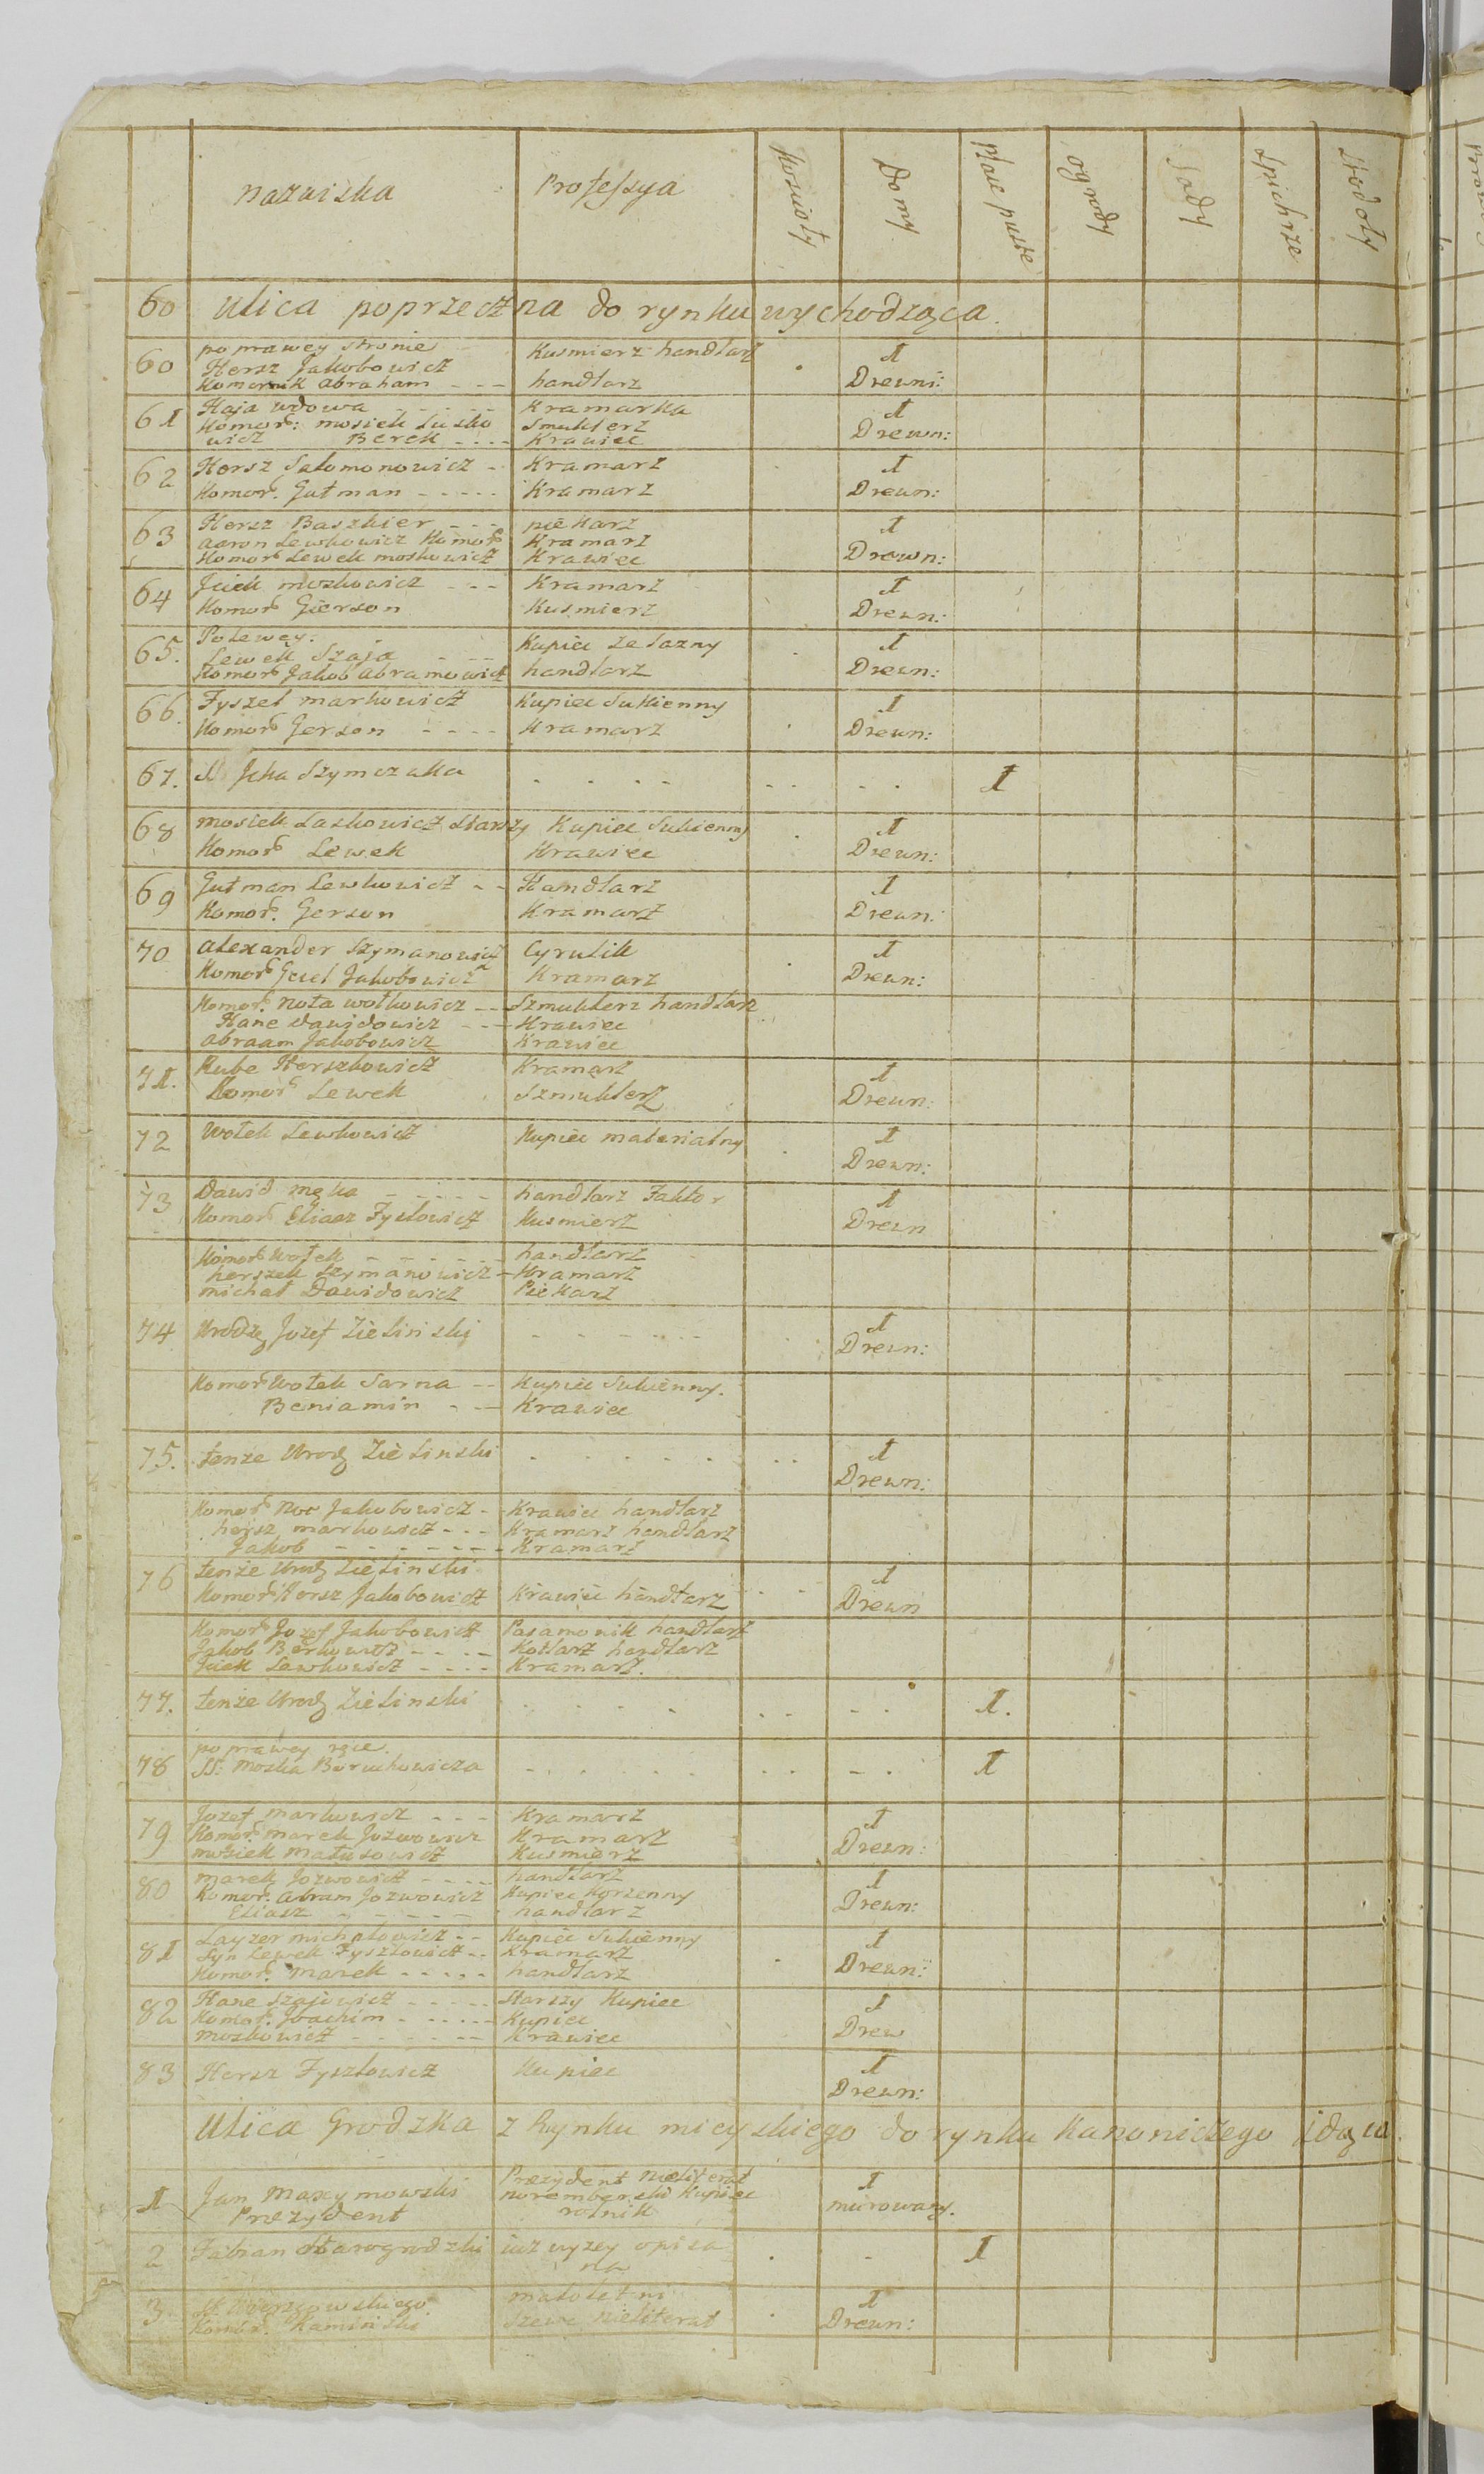 Nazwiska Professya Kościoły Domy place puste ogrody Sady Spichrze Stodoły
60 Ulica poprzeczna do rynku wychodząca.
po prawey stronie
60 Hersz Jakobowicz Kusmierz handlarz 1
Komornik Abraham - - - handlarz Drewni:
61 Haja wdowa - - - - Kramarka 1
Komor: Mosiek Lasko Smuklerz Drewn:
wicz Berek - - - - Krawiec
62 Hersz Salomonowicz - Kramarz 1
Komor. Gutman - - - - - Kramarz Drewn:
63 Hersz Baszkier - - - piekarz 1
Aaron Lewkowicz Komor Kramarz
Komor Lewek Moskowicz Krawiec Drewn:
64 Jcek Moszkowicz - - - Kramarz 1
Komor Gierson Kusmierz Drewn:
Po lewey:
65. Lewek Szaja - - - Kupiec zelazny 1
Komor Jakob Abramowicz handlarz Drewn:
66. Fyszel Markowicz Kupiec Sukienny 1
Komor Gerson - - - - Kramarz Drewn:
67. Jcka Szymczaka - - - - - - - - 1
68 Mosiek Laskowicz starszy Kupiec Sukienny 1
Komor Lewek Krawiec Drewn:
69 Gutman Lewkowicz - - Handlarz 1
Komor. Gerson Kramarz Drewn:
70 Alexander Szymanowicz Cyrulik 1
Komor Jakobowicz Kramarz Drewn:
Komor. Nota Wolkowicz - - Szmuklerz handlarz
Hane Dawidowicz - - - Krawiec
Abraam Jakobowicz Krawiec
71. Kube Herszkowicz Kramarz 1
Komor Lewek Szmuklerz Drewn:
72 Wolek Lewkowicz Kupiec materialny 1
Drewn:
73 Dawid Męka - - - - - handlarz Faktor 1
Komor Eliasz Fyszlowicz Kusmierz Drewn
Komor Wolek - - - - - handlarz
herszek Szymanowicz - Kramarz
Michał Dawidowicz Piekarz
74 Urodzo Jozef Zielinski - - - - - - 1
Drewn:
Komor Wolek Sarna - - Kupiec Sukienny.
Beniamin - - Krawiec
75. tenże Urodz Zielinski - - - - - - - 1
Drewn:
Komor Jakobowicz - - Krawiec handlarz
hersz Markowicz - - - Kramarz handlarz
Jakob - - - - - - - Kramarz
76 tenże Urodz Zielinski 1
Komor Hersz Jakobowicz Krawiec handlarz Drewn
Komor Jozef Jakobowicz Pasamonik handlarz
Jakob Berkowicz - - - - Kotlarz handlarz
Jcek Lewkowicz - - - - Kramarz.
77. tenże Urodz Zielinski - - - - - - - - 1.
po prawey ręce.
78 SS: Moszka Boruchowicza - - - - - - - - 1
79 Jozef Markowicz - - - Kramarz 1
Komor. Marek Jozwowicz Kramarz Drewn:
Mosiek Matusowicz Kusmierz
80 Marek Jozwowicz - - - - handlarz 1
Komor. Abram Jozwowicz Kupiec Korzenny Drewn:
Eliasz - - - - - handlarz
81 Layzer Michałowicz - - Kupiec Sukienny 1
Syn Lewek Fyszlowicz - - Kramarz
Komor. Marek - - - - - handlarz Drewn:
82 Hane Szajowicz - - - - - starszy Kupiec 1
Komor. Joachim - - - - - Kupiec
Moszkowicz - - - - - - Krawiec Drew
83 Hersz Fyszlowicz Kupiec 1
Drewn:
Ulica Grodzka z Rynku mieyskiego do rynku Kanoniczego idąca.
1 Jan Maxymowski Prezydent nieliterat 1
Prezydent noremberski Kupiec murowany.
rolnik
2 Fabian Starogrodzki iuż wyzey opisa - - 1
na
3 małoletni 1
Komor. Kaminski Szewc nieliterat Drewn: